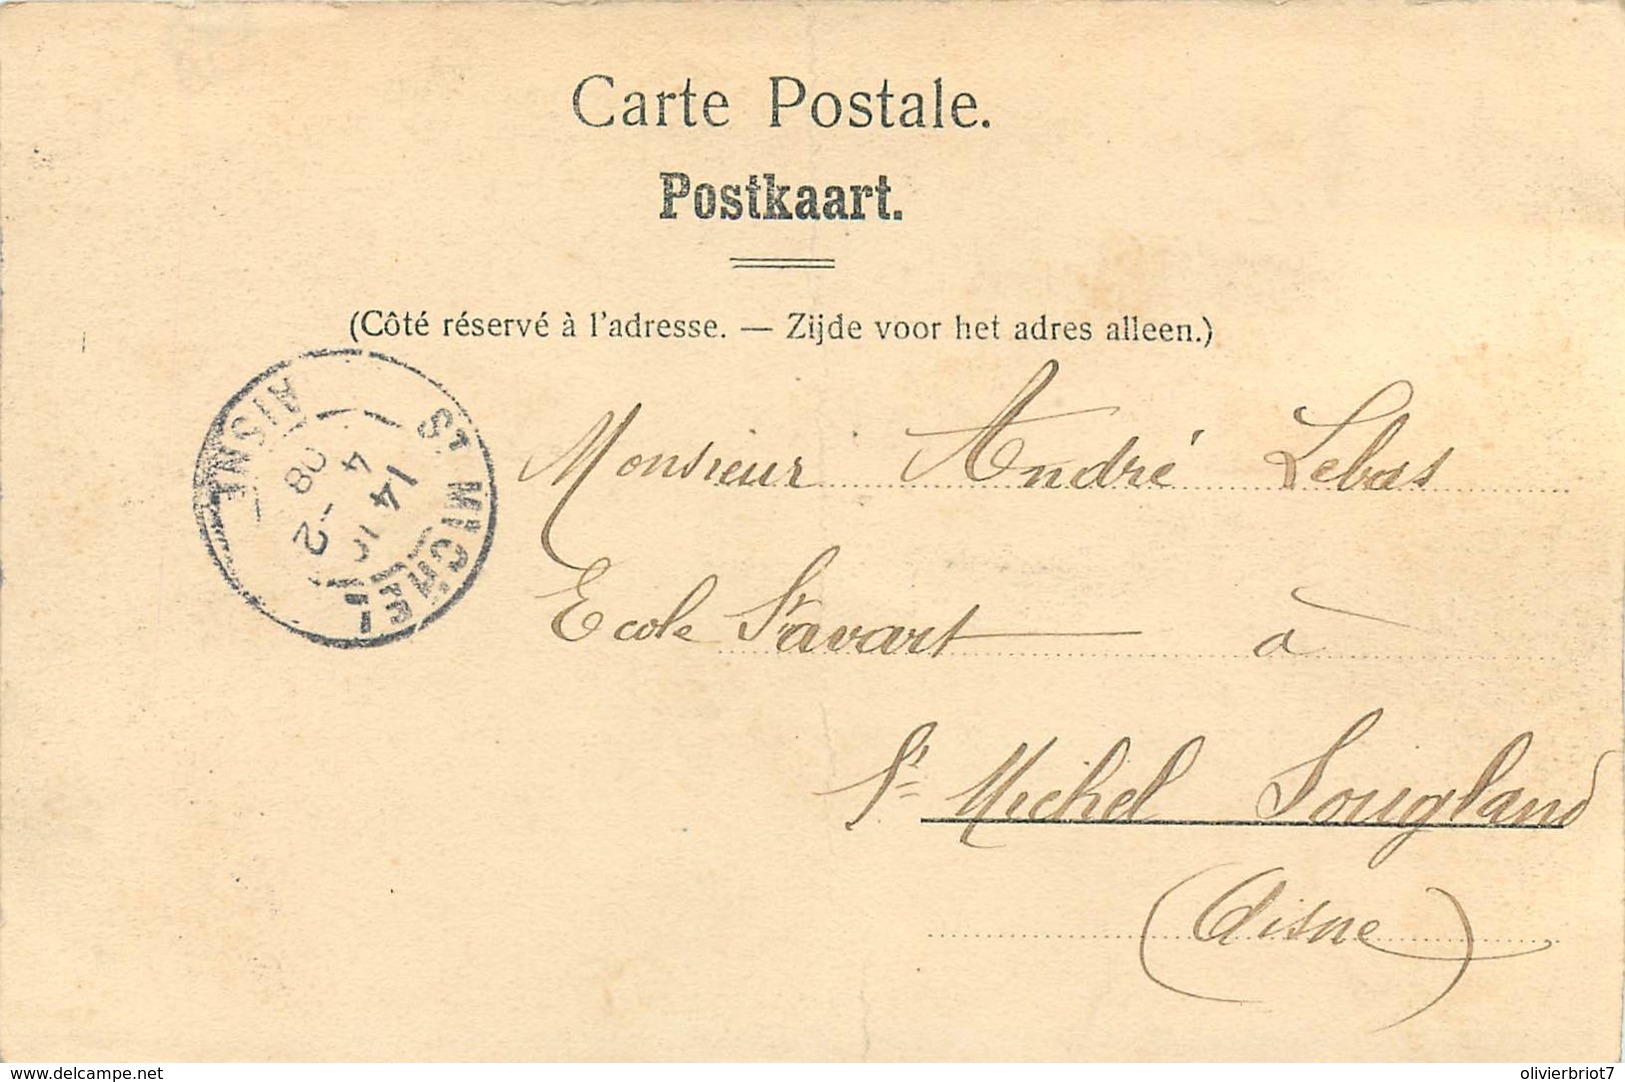 Carte Postale.
Postkaart.
(Côté réservé à l'adresse. — Zijde voor het adres alleen.)
ST MICHEL
AISNE
14
4 -2
08
Monsieur André Lebas
Ecole Savart à
St Michel Sougland
(Aisne)
delcampe.net
olivierbriot7